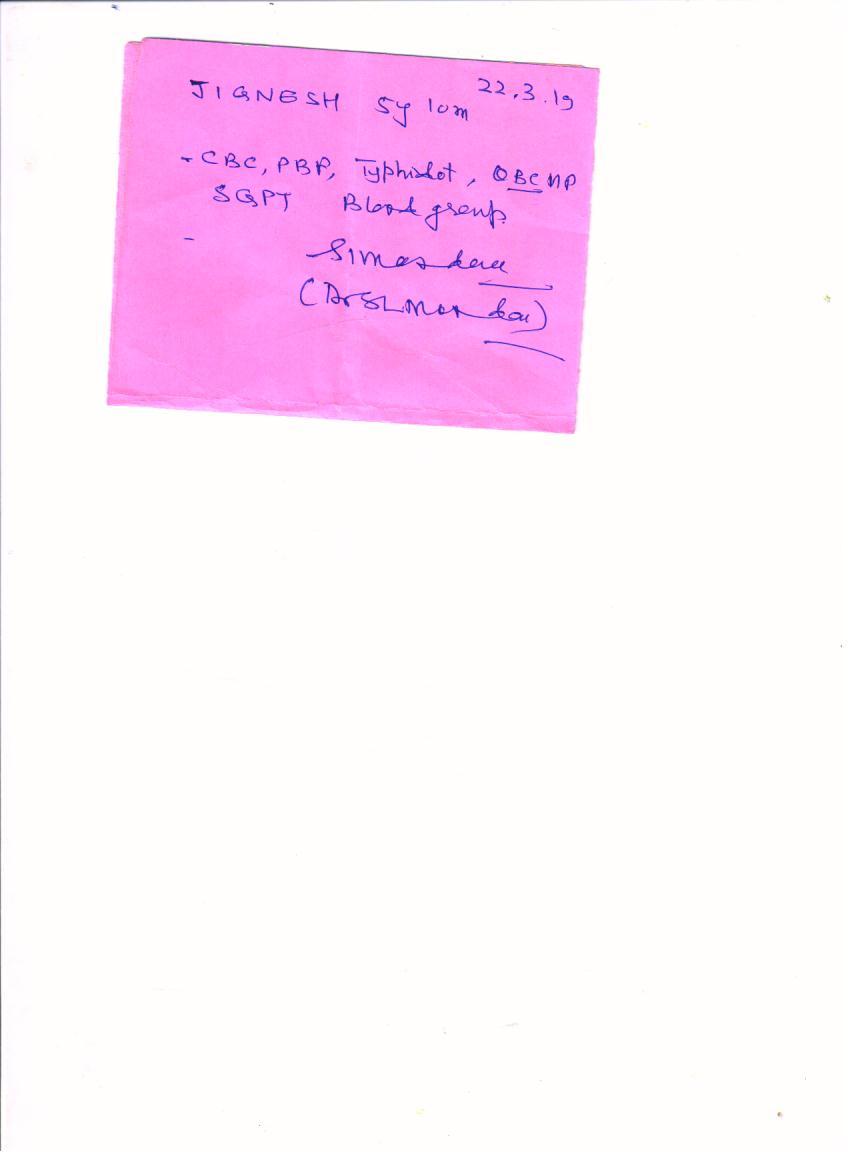 22.3.19
JIGNESH 5y 10m
- CBC, PBP, Typhidot, QBC MP
SGPT Blood group
-
(Dr SL